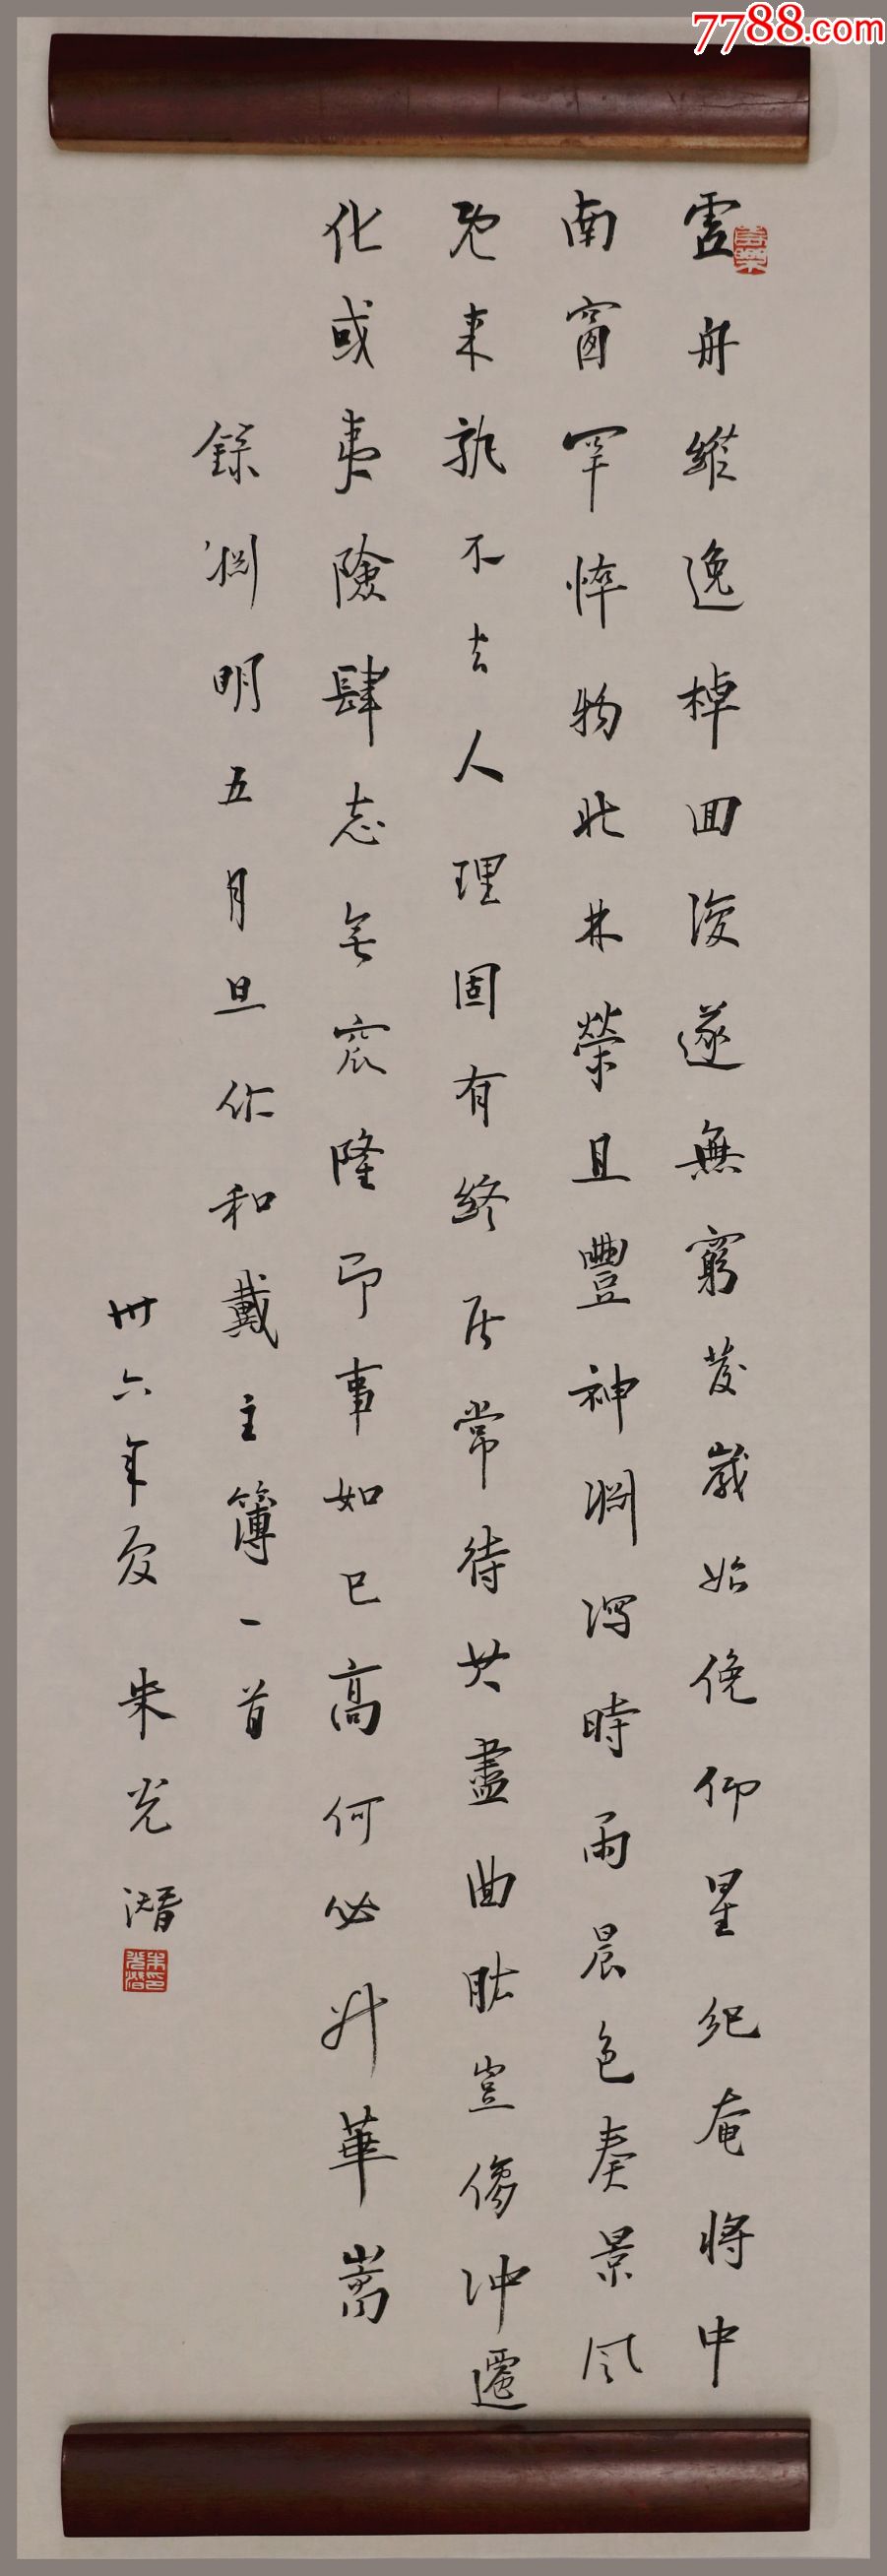 7788.com
虛舟縱逸棹回復遂無窮發歲始俛仰星紀奄將中
南窗罕悴物北林榮且豐神淵瀉時雨晨色奏景風
既來孰不去人理固有終居常待其盡曲肱豈傷沖遷
化或夷險肆志無窊隆即事如已高何必升華嵩
錄淵明五月旦作和戴主簿一首
卅六年夏 朱光潛
朱光潛印